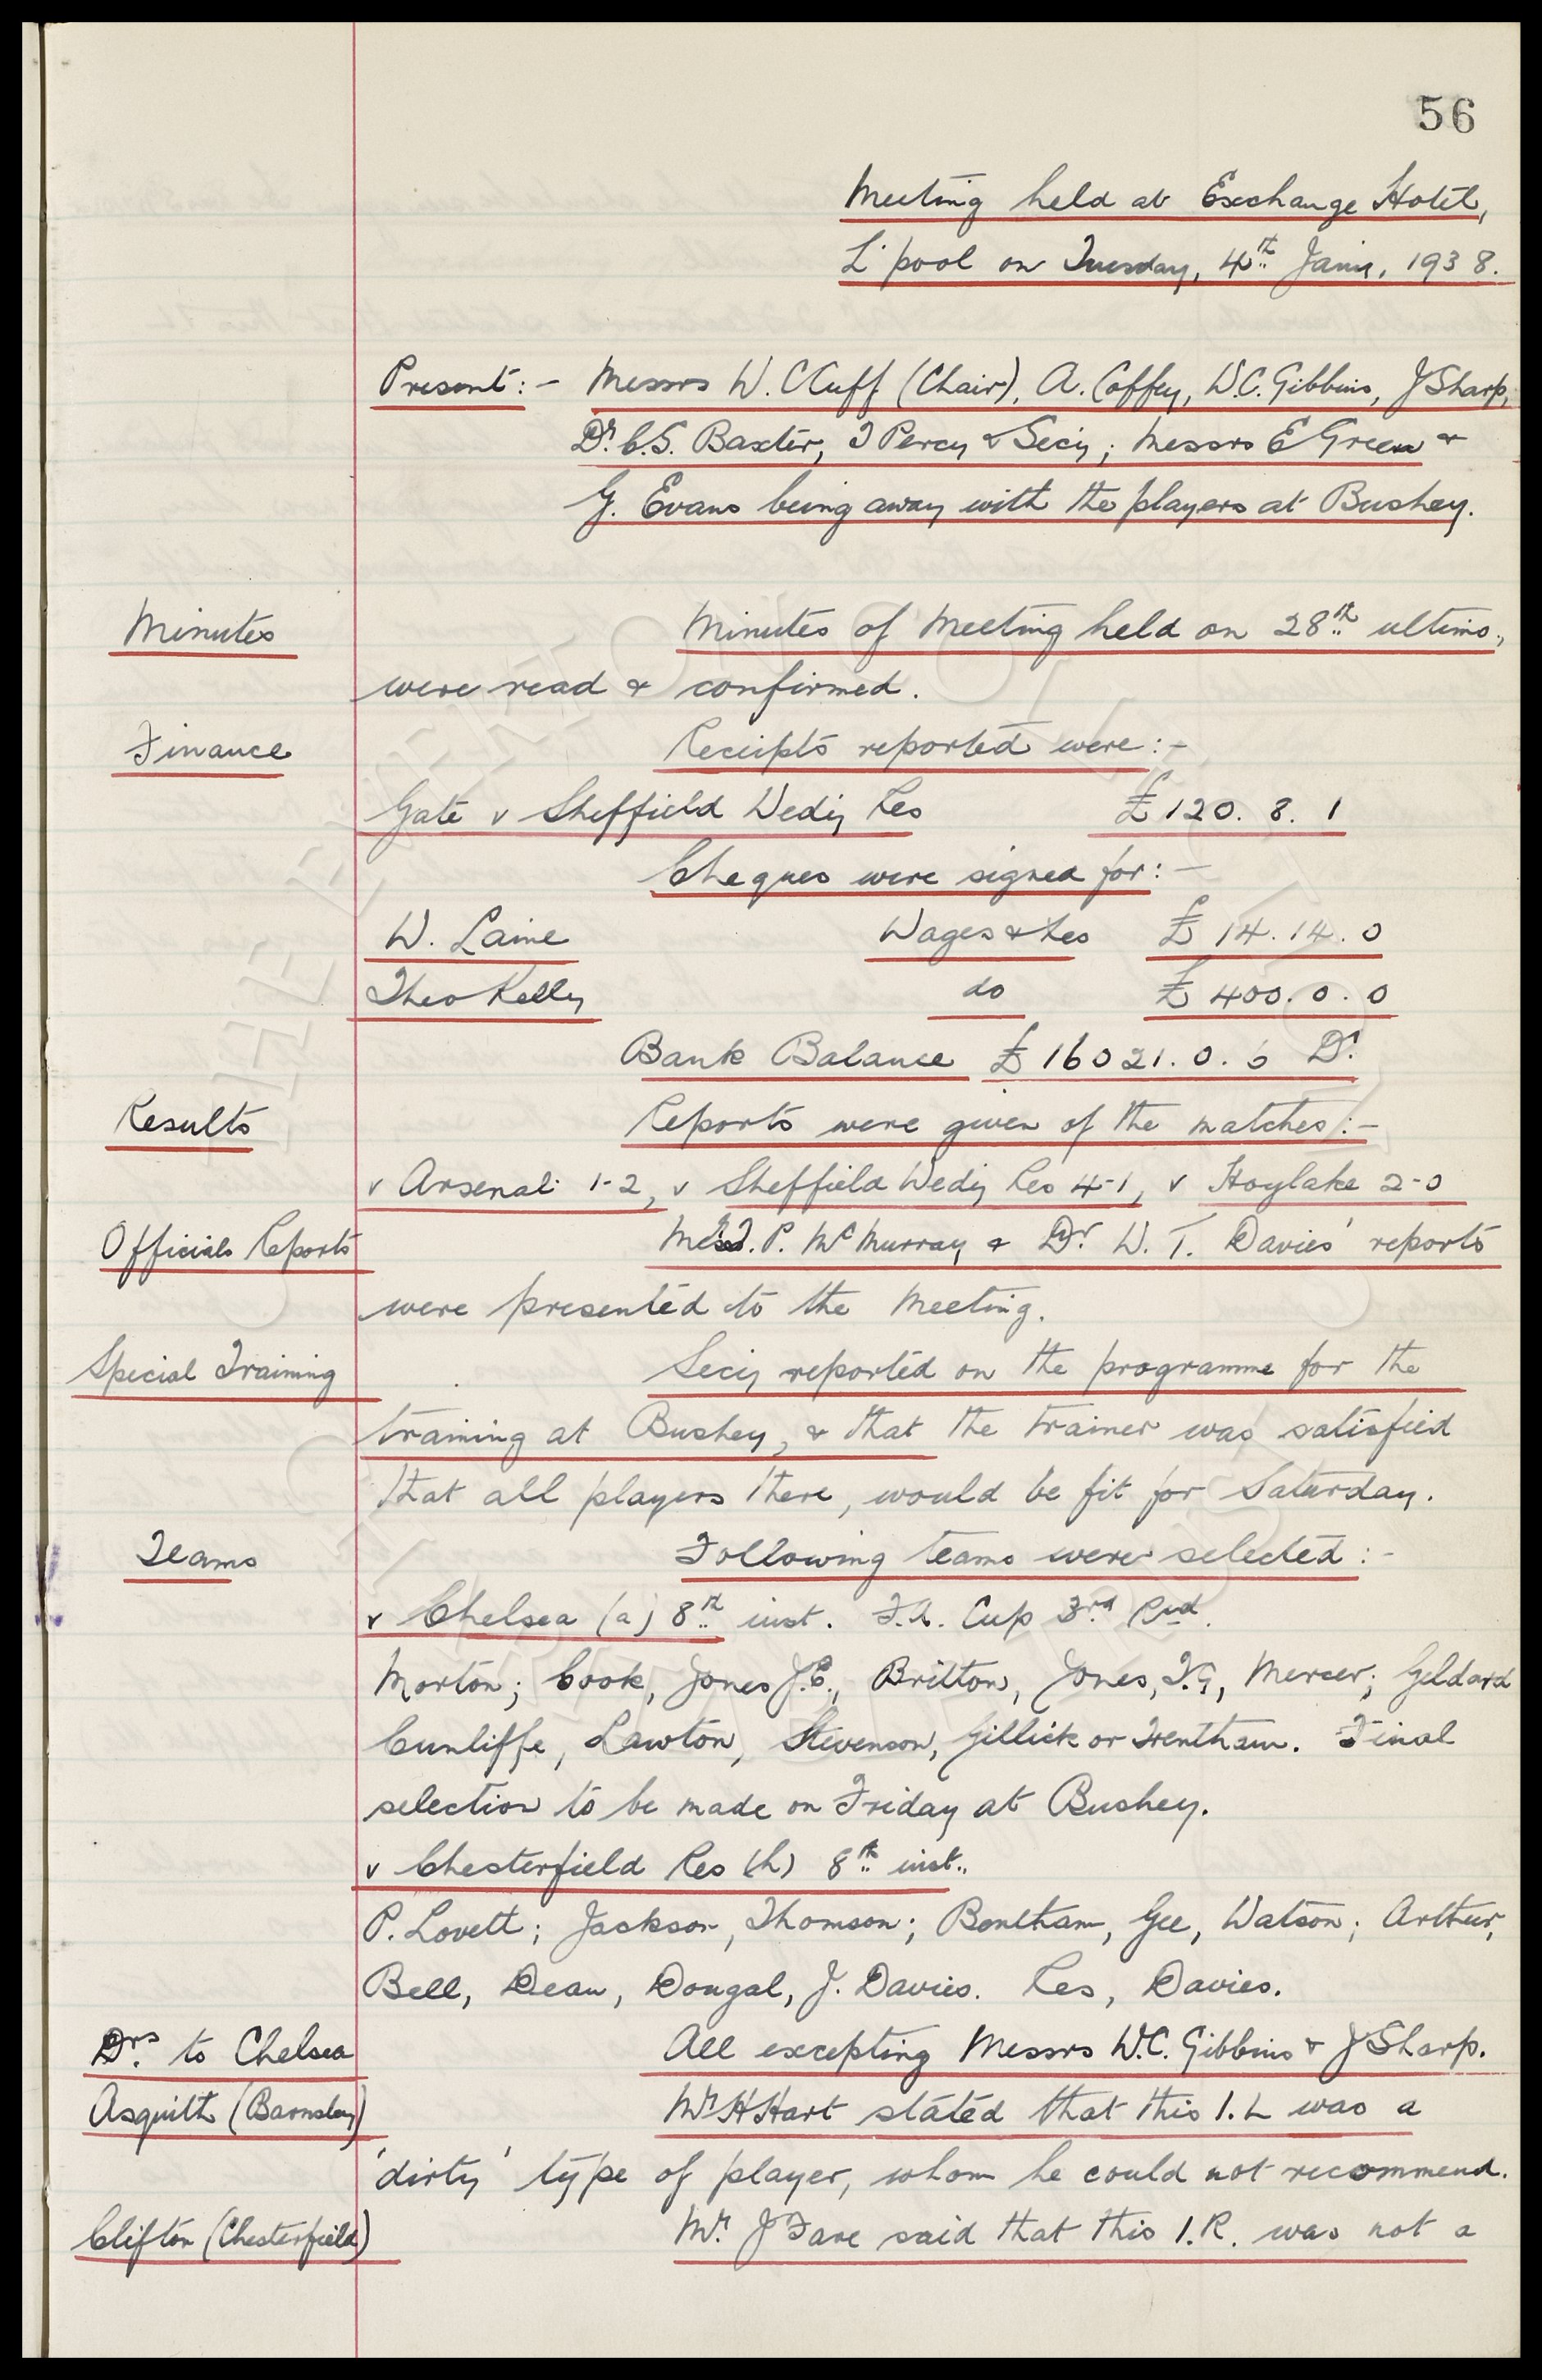 56
Meeting held at Exchange Hotel,
L'pool on Tuesday, 4th Jany, 1938.
Present:- Messrs W. C Cuff (Chair), A. Coffey, W.C. Gibbins, J Sharp,
Dr. C.S. Baxter, T Percy & Secy; Messrs E Green &
G. Evans being away with the players at Bushey.
Minutes Minutes of Meeting held on 28th ultimo.,
were read & confirmed.
Finance Receipts reported were:-
Gate v Sheffield Wedy Res £120. 8. 1
Cheques were signed for:-
W. Laine Wages & Les £ 14. 14. 0
Theo Kelly do £ 400. 0. 0
Bank Balance £ 16021. 0. 6 Dr.
Results Reports were given of the matches:-
v Arsenal 1-2, v Sheffield Wedy Res 4-1, v Hoylake 2-0
Officials Reports P. McMurray & Dr. W. T. Davies' reports
were presented to the Meeting.
Special Training Secy reported on the programme for the
training at Bushey, & that the trainer was satisfied
that all players there, would be fit for Saturday.
Teams Following teams were selected:-
v Chelsea (a) 8th inst. F.A. Cup 3rd Rnd.
Morton; Cook, Jones J.E., Britton, Jones, T.G, Mercer; Geldard
Cunliffe, Lawton, Stevenson, Gillick or Trentham. Final
selection to be made on Friday at Bushey.
v Chesterfield Res (h) 8th inst.
P. Lovett; Jackson, Thomson; Bentham, Gee, Watson; Arthur,
Bell, Dean, Dougal, J. Davies. Res, Davies.
Drs. to Chelsea All excepting Messrs W.C. Gibbins & J Sharp.
Asquith (Barnsley) Mr H Hart stated that this I.L was a
'dirty' type of player, whom he could not recommend.
Clifton (Chesterfield) Mr. J Fare said that this I.R. was not a